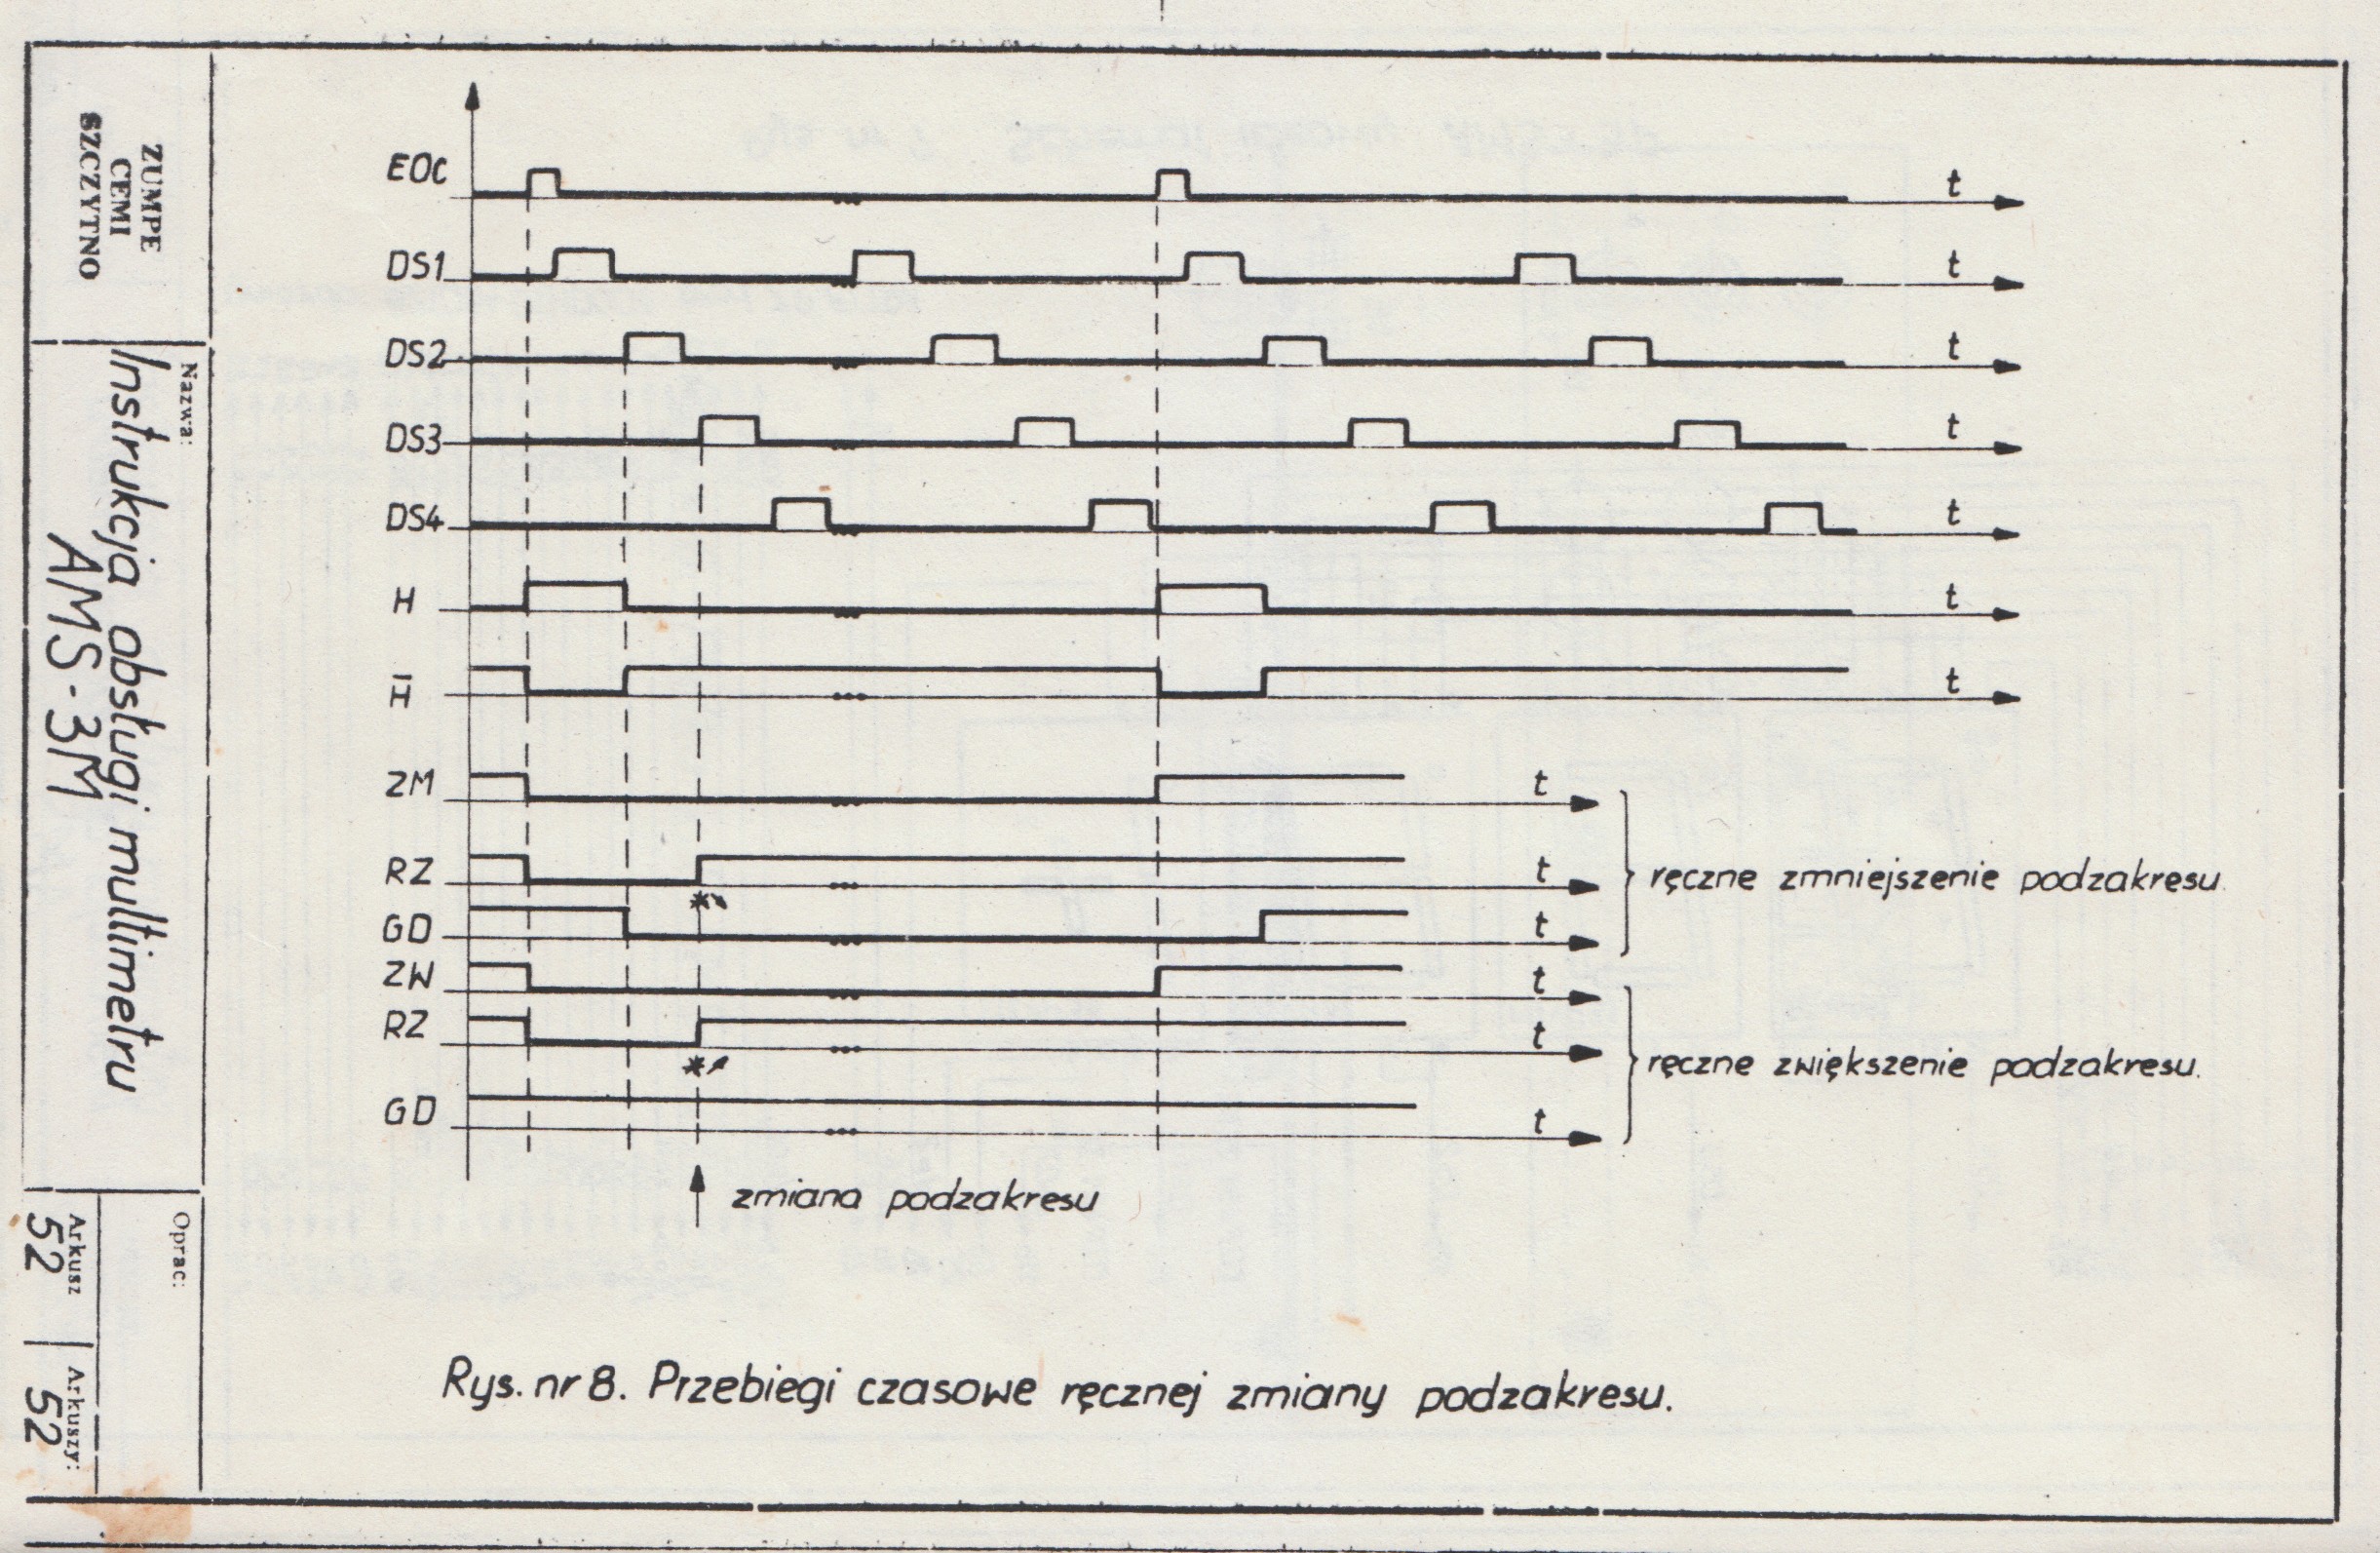 ZUMPE
CEMI
SZCZYTNO
Nazwa:
Instrukcja obsługi multimetru
AMS-3M
Oprac:
Arkusz
52
Arkuszy:
52
EOC
t
DS1
t
DS2
t
DS3
t
DS4
t
H
t
H̅
t
ZM
t
RZ
t
*
GD
t
ręczne zmniejszenie podzakresu
ZW
t
RZ
t
*
GD
t
ręczne zwiększenie podzakresu.
zmiana podzakresu
Rys. nr 8. Przebiegi czasowe ręcznej zmiany podzakresu.